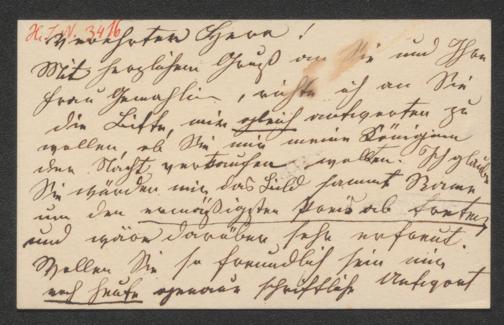 H. I. N. 3416
Verehrter Herr!
Mit herzlichem Gruß an Sie und Ihre
Frau Gemahlin, richte ich an Sie
die Bitte, mir gleich antworten zu
wollen, ob Sie mir meine Königinn
der Nacht verkaufen wollen. Ich glaube
Sie würden mir das Bild sammt Rame
um den ermäßigsten Preis ab treten
und wäre darüber sehr erfreut.
Wollen Sie so freundlich sein mir
noch heute genaue schriftliche Antwort